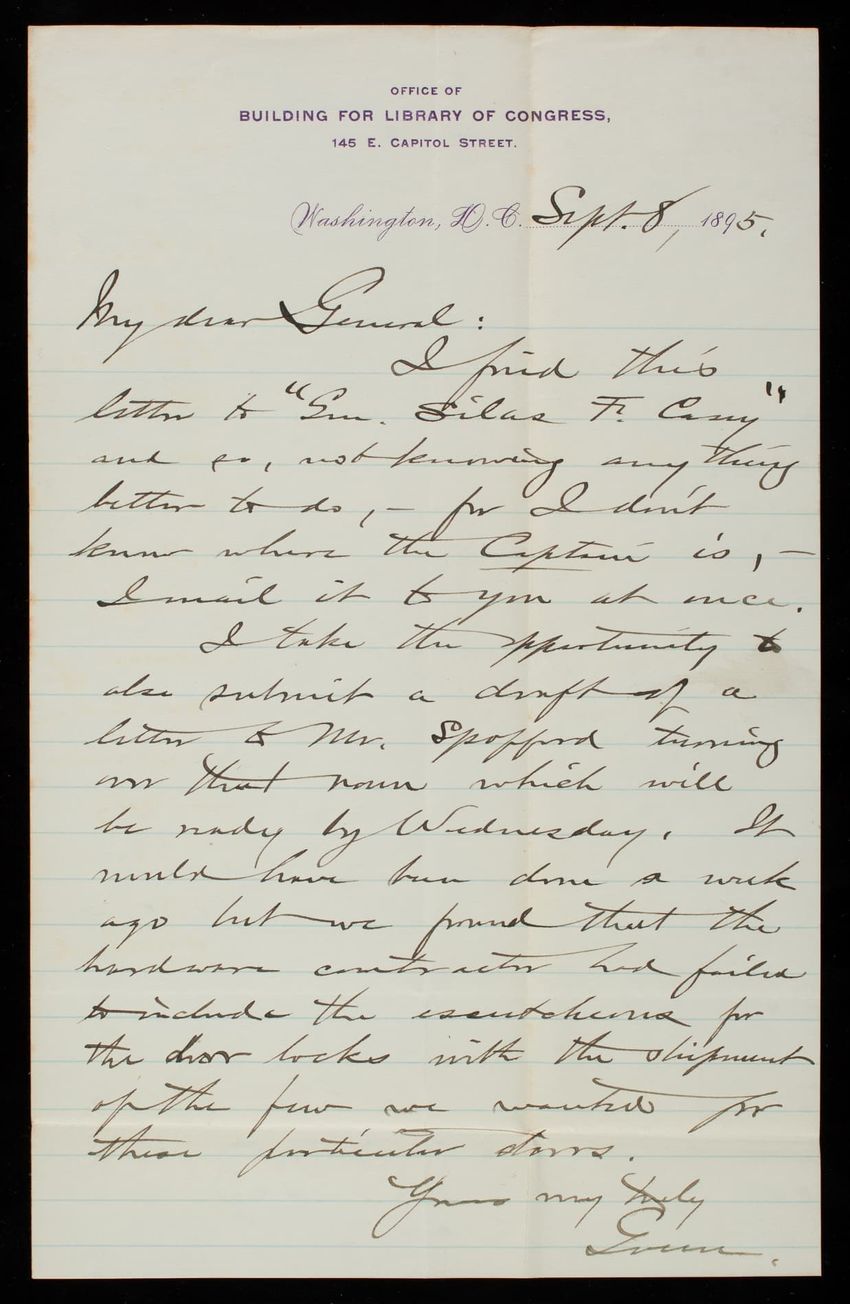 OFFICE OF
BUILDING FOR LIBRARY OF CONGRESS,
145 E. CAPITOL STREET.
Washington, D.C. Sept. 8, 1895.
My dear General:
I find this
letter to "Gen. Silas F. Casey"
and so, not knowing anything
better to do, – for I don't
know where the Captain is, –
I mail it to you at once.
I take the opportunity to
also submit a draft of a
letter to Mr. Spofford turning
over that room which will
be ready by Wednesday. It
would have been done a week
ago but we found that the
hardware contractor had failed
to include the escutcheons for
the door locks with the shipment
of the few we wanted for
these particular doors.
Yours very truly
Green.